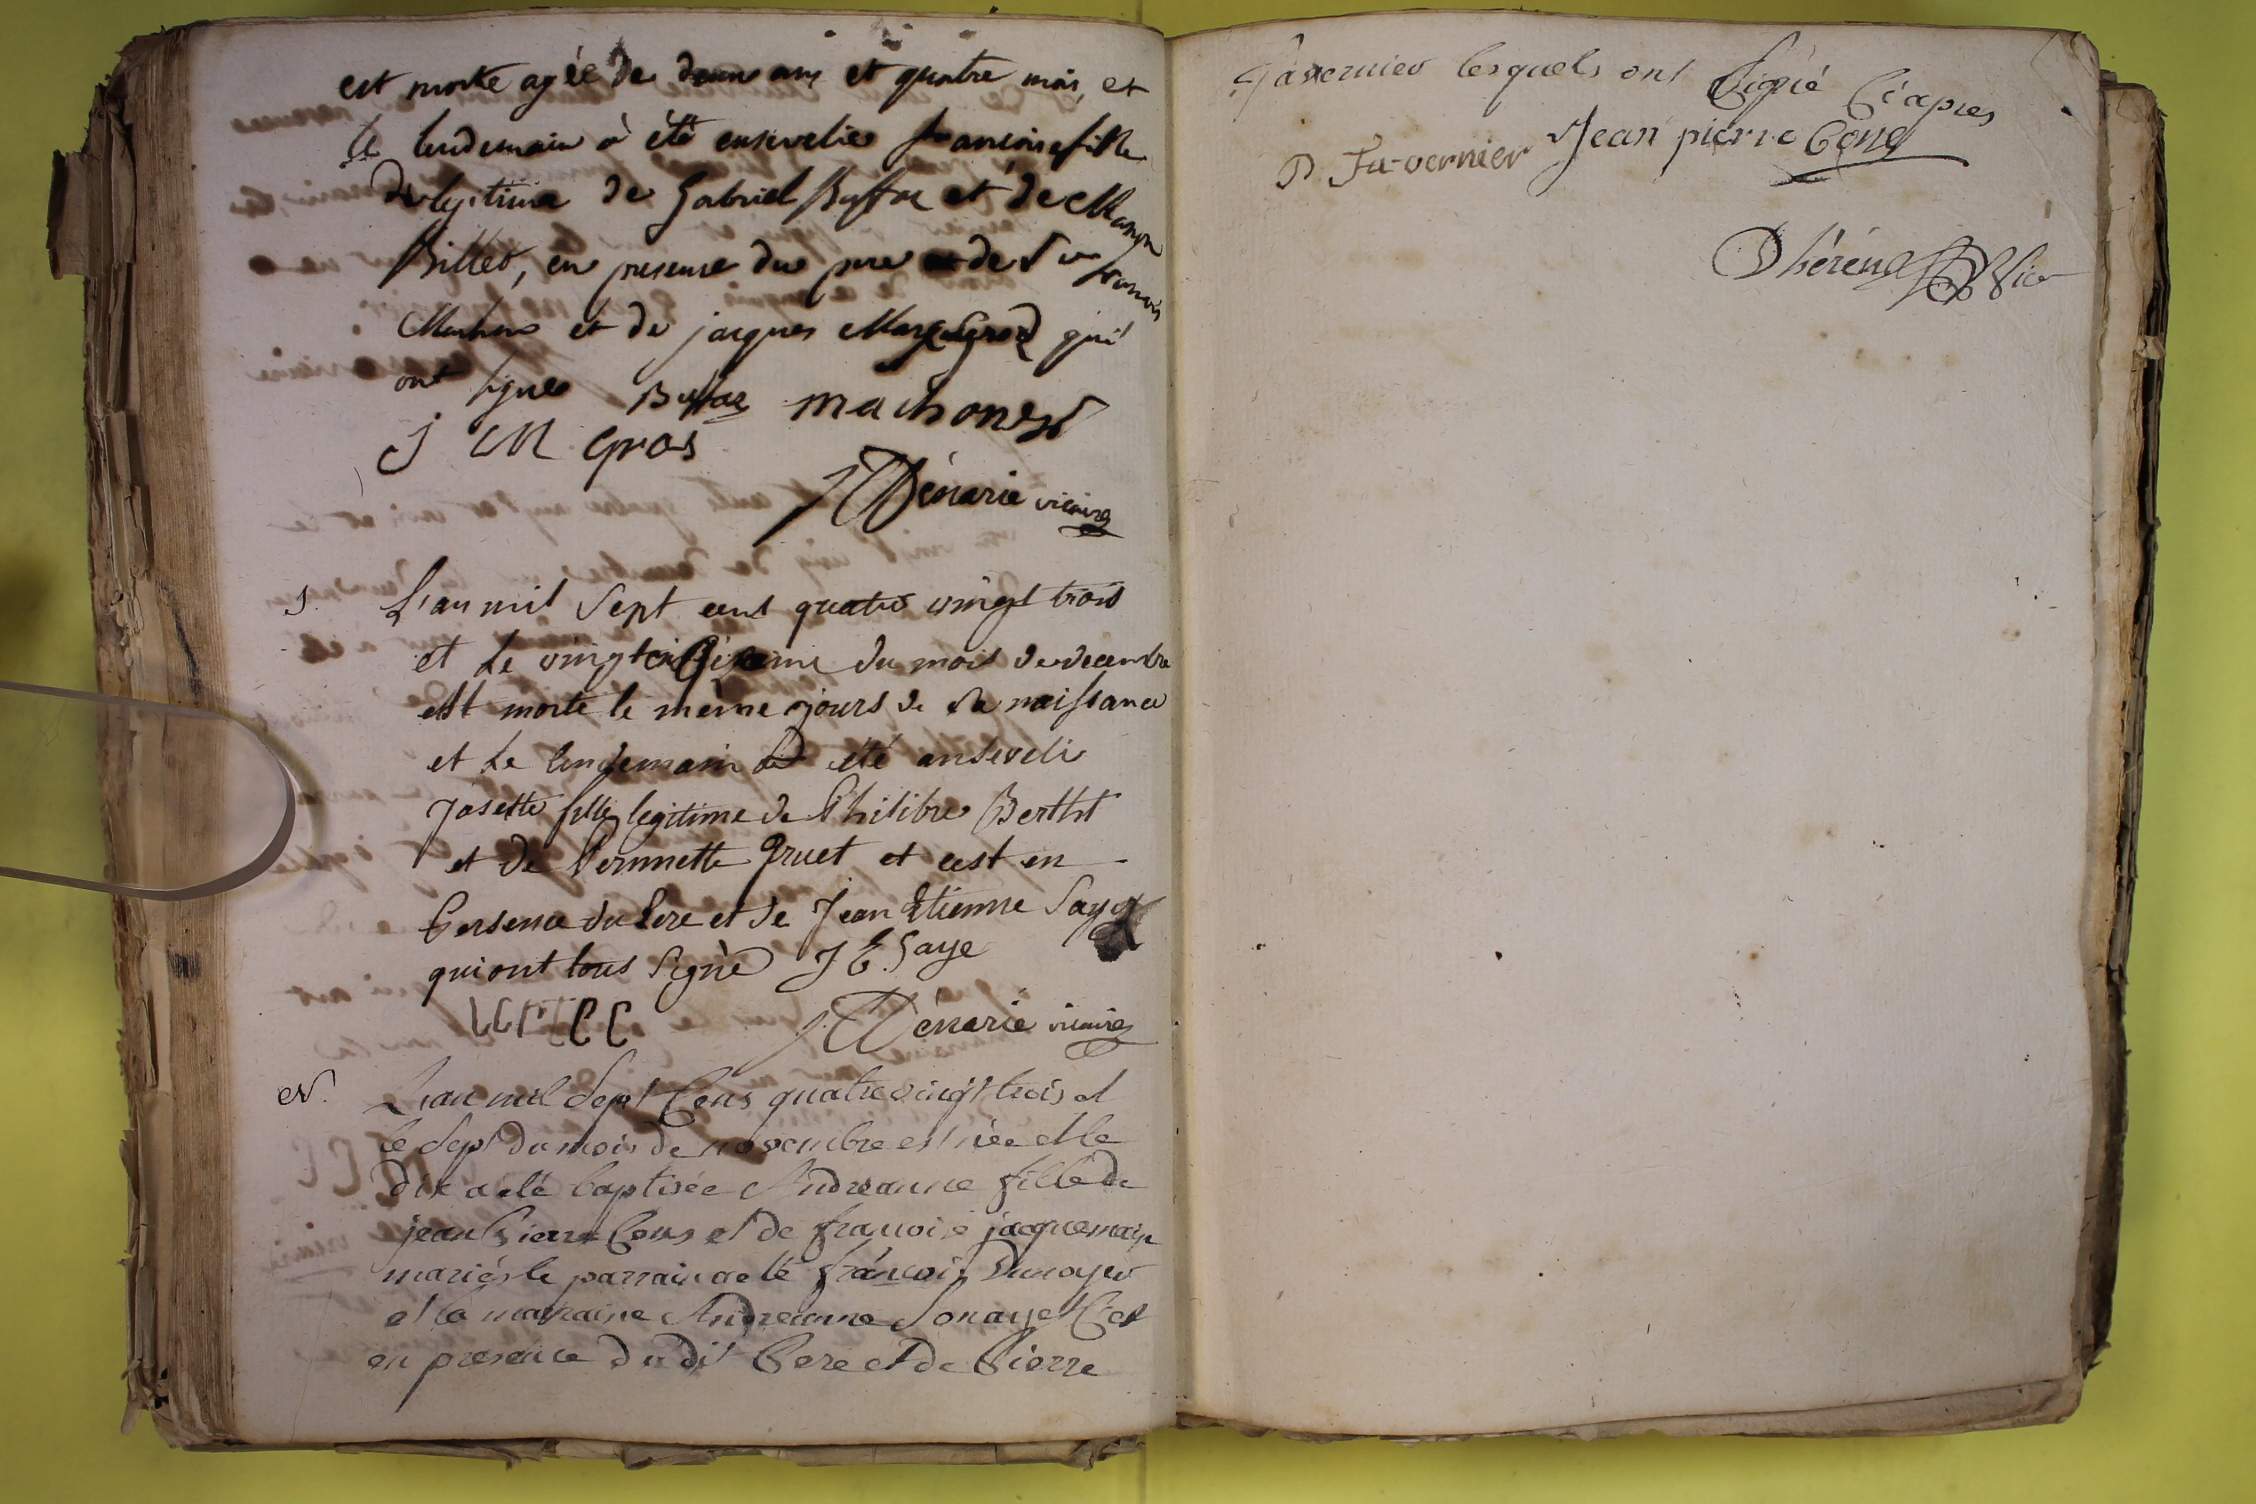 est morte agée de deux ans et quatre mois, et
le lendemain à été ensevelie francoise fille
legitime de Gabriel Buffaz et de Manon
Billet, en presence du pere de Sr francois
et de jacques qui
ont signes Buffaz machonex
J M Gros
Dénarié vicaire
S. L'an mil Sept cent quatre vingt trois
et le du mois de decembre
est morte le même jours de sa naissance
et le lendemain a été anseveli
Josette fille legitime de Philibre Bertht
et de Pernnette Gruet et cest en
Persence du Pere et de Jean Etienne Saye
qui ont tous Signè J E. Saye
Dénarié vicaire
N. L'an mil Sept Cens quatre vingt trois et
le Sept du mois de novembre est née et le
dix a eté baptisée Andreanne fille de
jean Pierre Cons et de francoise jacquemain
mariés le parrain a eté françois Dunoyer
et la marraine Andreanne C'est
en presence du dit Pere et de Pierre
Tavernier lesquels ont Signé Ciapres
P Ta-vernier Jean pierre Cons
Dhérens Vic